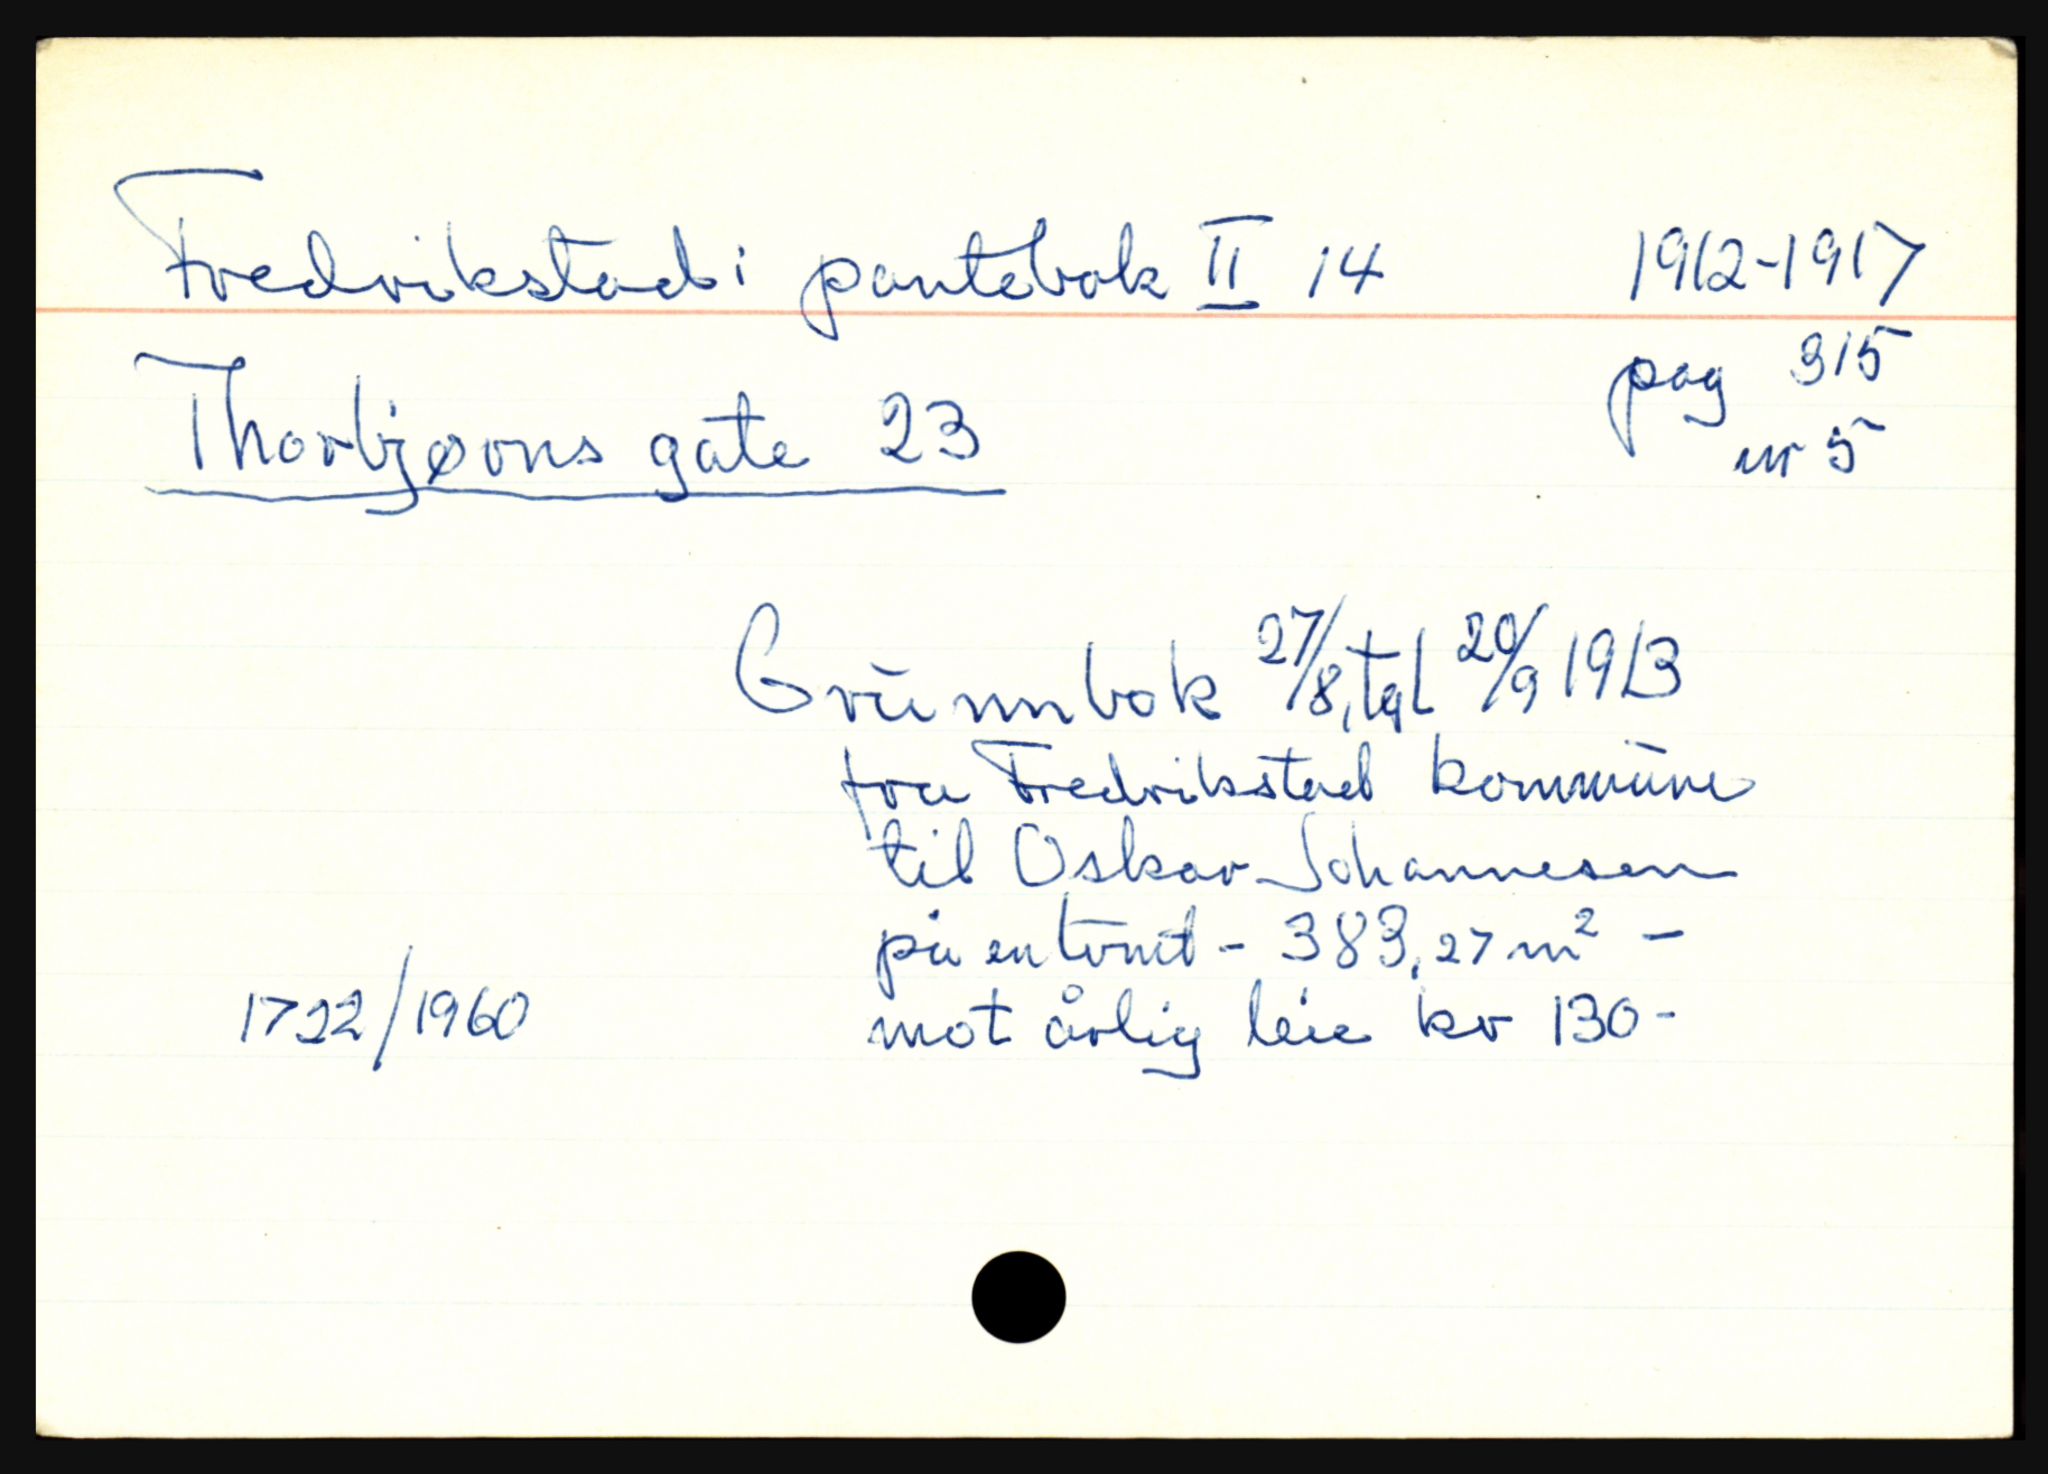 Fredrikstad: pantebok II 14 1912-1917
pag 315
Thorbjørns gate 23
nr 5
Grunnbok 27/8, tgl 20/9 1913
fra Fredrikstad kommune
til Oskar Johannesen
på en tomt - 383,27 m² -
1722/1960 mot årlig leie kr 130-